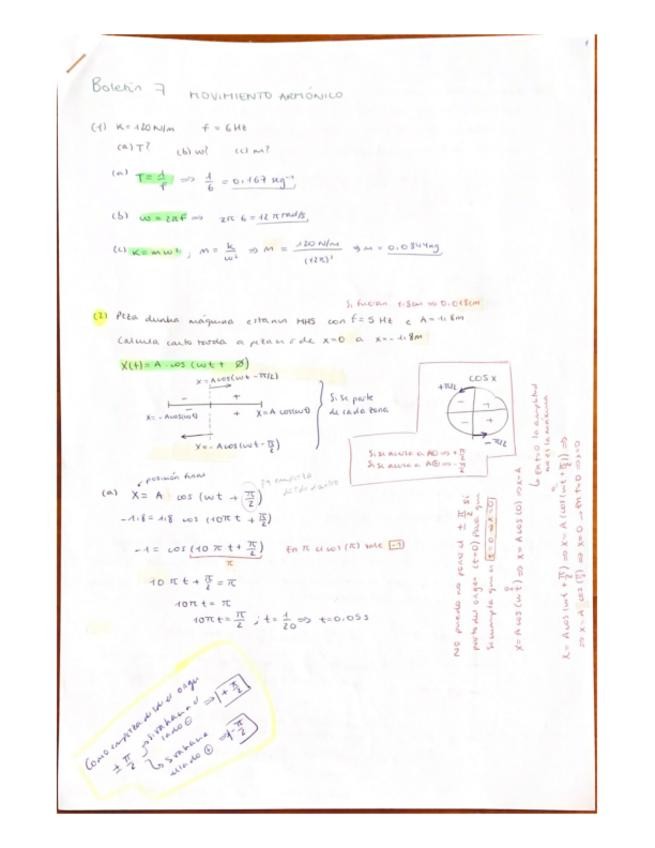 Boletín 7 MOVIMIENTO ARMÓNICO
(1) K = 120 N/m f = 6 Hz
(a) T? (b) w? (c) m?
(a) T = 1/f => 1/6 = 0.167 seg⁻¹
(b) w = 2πf => 2π 6 = 12 π rad/s
(c) K = mw² ; m = K/w² => m = 120 N/m / (12π)² => m = 0.0844 kg
Si fueran 1.8cm => 0.018cm
(2) Peza dunha máquina estanun MHS con f = 5 Hz e A = 1.8m
Calcula canto tarda a peza n de x=0 a x=-1.8m
X(t) = A cos (wt + Ø)
x = A cos(wt - π/2)
- +
- +
x = -A cos(wt) x = A cos(wt)
x = -A cos(wt - π/2)
Si se parte
de cada zona
COS X
+π/2
- +
- +
-π/2
(a) posición final
X = A cos (wt + π/2)
-1.8 = 1.8 cos (10π t + π/2)
-1 = cos (10 π t + π/2) En π el cos (π) vale -1
π
10 π t + π/2 = π
10π t = π
10π t = π/2 ; t = 1/20 => t = 0.05 s
No puedo no poner el ± π/2 si
parto del origen (t=0) para que
se cumpla que si t=0 => x=0
X = A cos (wt) => x = A cos (0) => x = A
↳ En t=0 la amplitud
no es la máxima
X = A cos (wt + π/2) => X = A (cos (wt + π/2)) =>
=> X = A cos (π/2) => X = 0 → En t=0 => x=0
Como empieza desde el origen
± π/2 => + π/2
=> - π/2